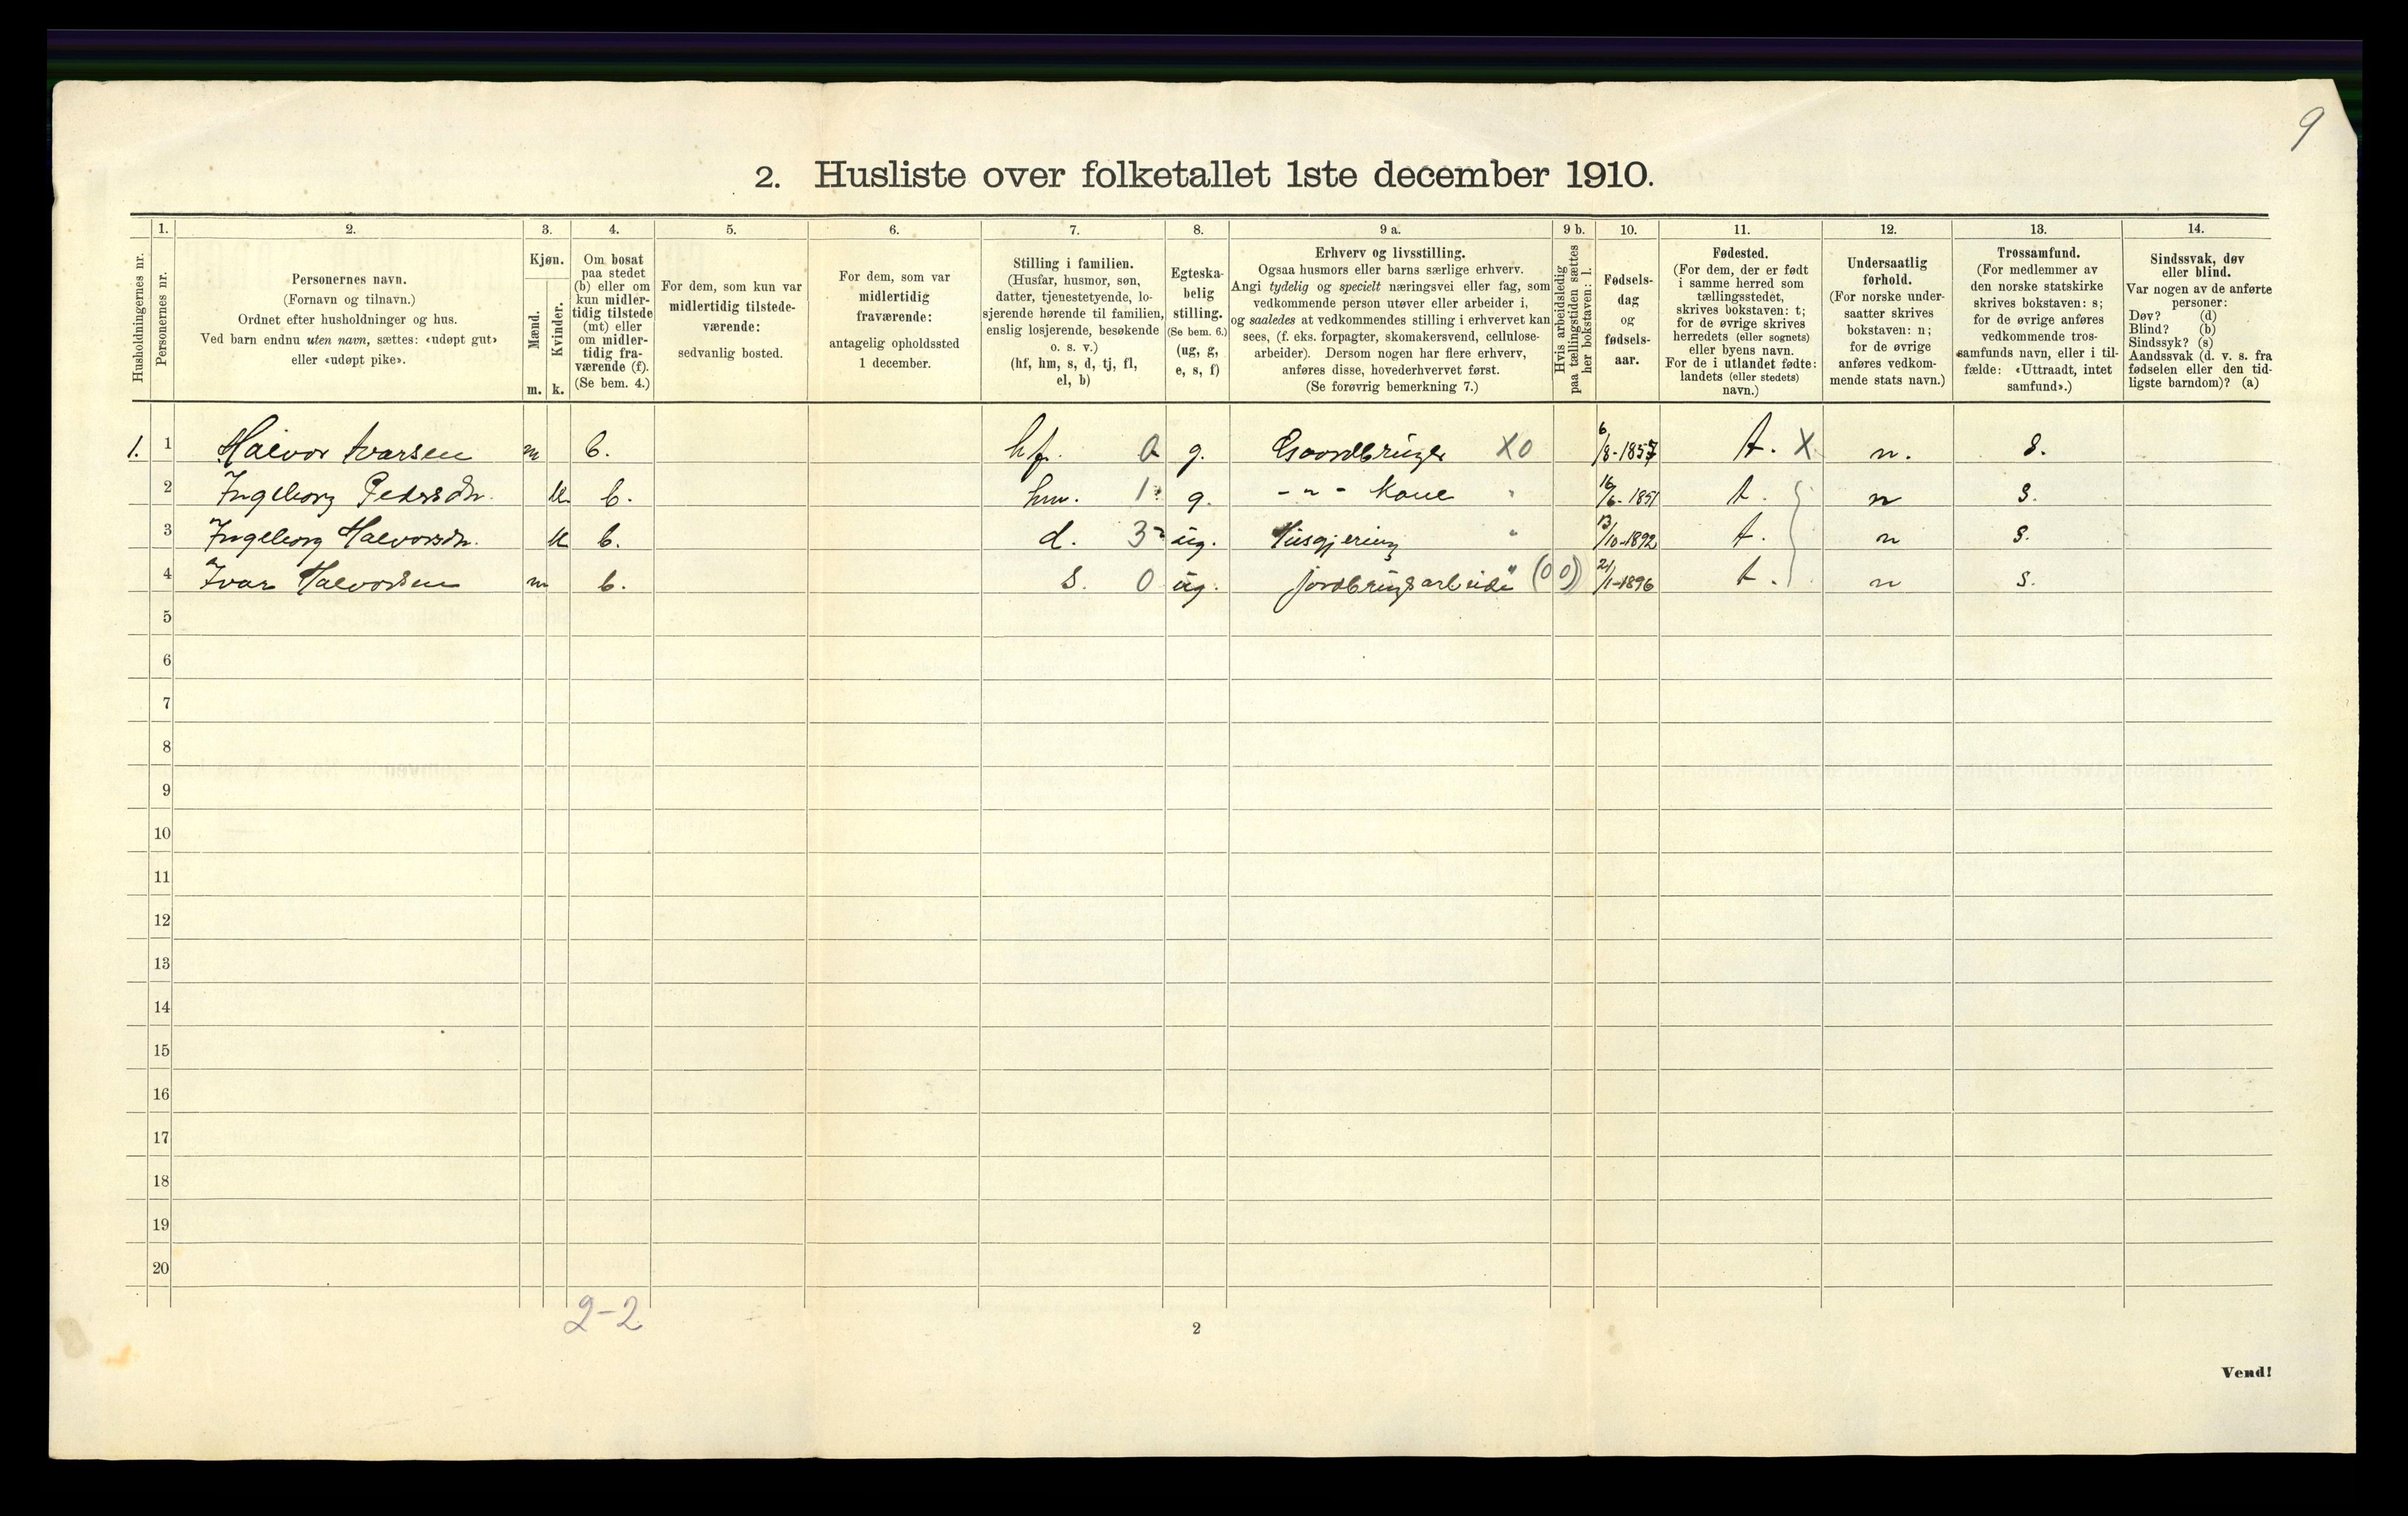 9
2. Husliste over folketallet 1ste december 1910.
1. 2. 3. 4. 5. 6. 7. 8. 9 a. 9 b. 10. 11. 12. 13. 14.
Husholdningernes nr.
Personernes nr.
Personernes navn.
(Fornavn og tilnavn.)
Ordnet efter husholdninger og hus.
Ved barn endnu uten navn, sættes: «udøpt gut»
eller «udøpt pike».
Kjøn.
Mænd.
m.
Kvinder.
k.
Om bosat
paa stedet
(b) eller om
kun midler-
tidig tilstede
(mt) eller
om midler-
tidig fra-
værende (f).
(Se bem. 4.)
For dem, som kun var
midlertidig tilstede-
værende:
sedvanlig bosted.
For dem, som var
midlertidig
fraværende:
antagelig opholdssted
1 december.
Stilling i familien.
(Husfar, husmor, søn,
datter, tjenestetyende, lo-
sjerende hørende til familien,
enslig losjerende, besøkende
o. s. v.)
(hf, hm, s, d, tj, fl,
el, b)
Egteska-
belig
stilling.
(Se bem. 6.)
(ug, g,
e, s, f)
Erhverv og livsstilling.
Ogsaa husmors eller barns særlige erhverv.
Angi tydelig og specielt næringsvei eller fag, som
vedkommende person utøver eller arbeider i,
og saaledes at vedkommendes stilling i erhvervet kan
sees, (f. eks. forpagter, skomakersvend, cellulose-
arbeider). Dersom nogen har flere erhverv,
anføres disse, hovederhvervet først.
(Se forøvrig bemerkning 7.)
Hvis arbeidsledig
paa tællingstiden sættes
her bokstaven: l.
Fødsels-
dag
og
fødsels-
aar.
Fødested.
(For dem, der er født
i samme herred som
tællingsstedet,
skrives bokstaven: t;
for de øvrige skrives
herredets (eller sognets)
eller byens navn.
For de i utlandet fødte:
landets (eller stedets)
navn.)
Undersaatlig
forhold.
(For norske under-
saatter skrives
bokstaven: n;
for de øvrige
anføres vedkom-
mende stats navn.)
Trossamfund.
(For medlemmer av
den norske statskirke
skrives bokstaven: s;
for de øvrige anføres
vedkommende tros-
samfunds navn, eller i til-
fælde: «Uttraadt, intet
samfund».)
Sindssvak, døv
eller blind.
Var nogen av de anførte
personer:
Døv? (d)
Blind? (b)
Sindssyk? (s)
Aandssvak (d. v. s. fra
fødselen eller den tid-
ligste barndom)? (a)
1. 1 Halvor Ivarsen m b. hf. 0 g. Gaardbruger X0 6/8-1857 t. X n. s.
2 Ingeborg Pedersdtr. k b. hm. 1 g. -"- kone " 16/6-1851 t. n s.
3 Ingeborg Halvorsdtr. k b. d. 3 ug. Husgjerning " 13/10-1892 t. n s.
4 Ivar Halvorsen m b. s. 0 ug. jordbrugsarbeide " (00) 21/1-1896 t. n s.
5
6
7
8
9
10
11
12
13
14
15
16
17
18
19
20
2-2
2
Vend!